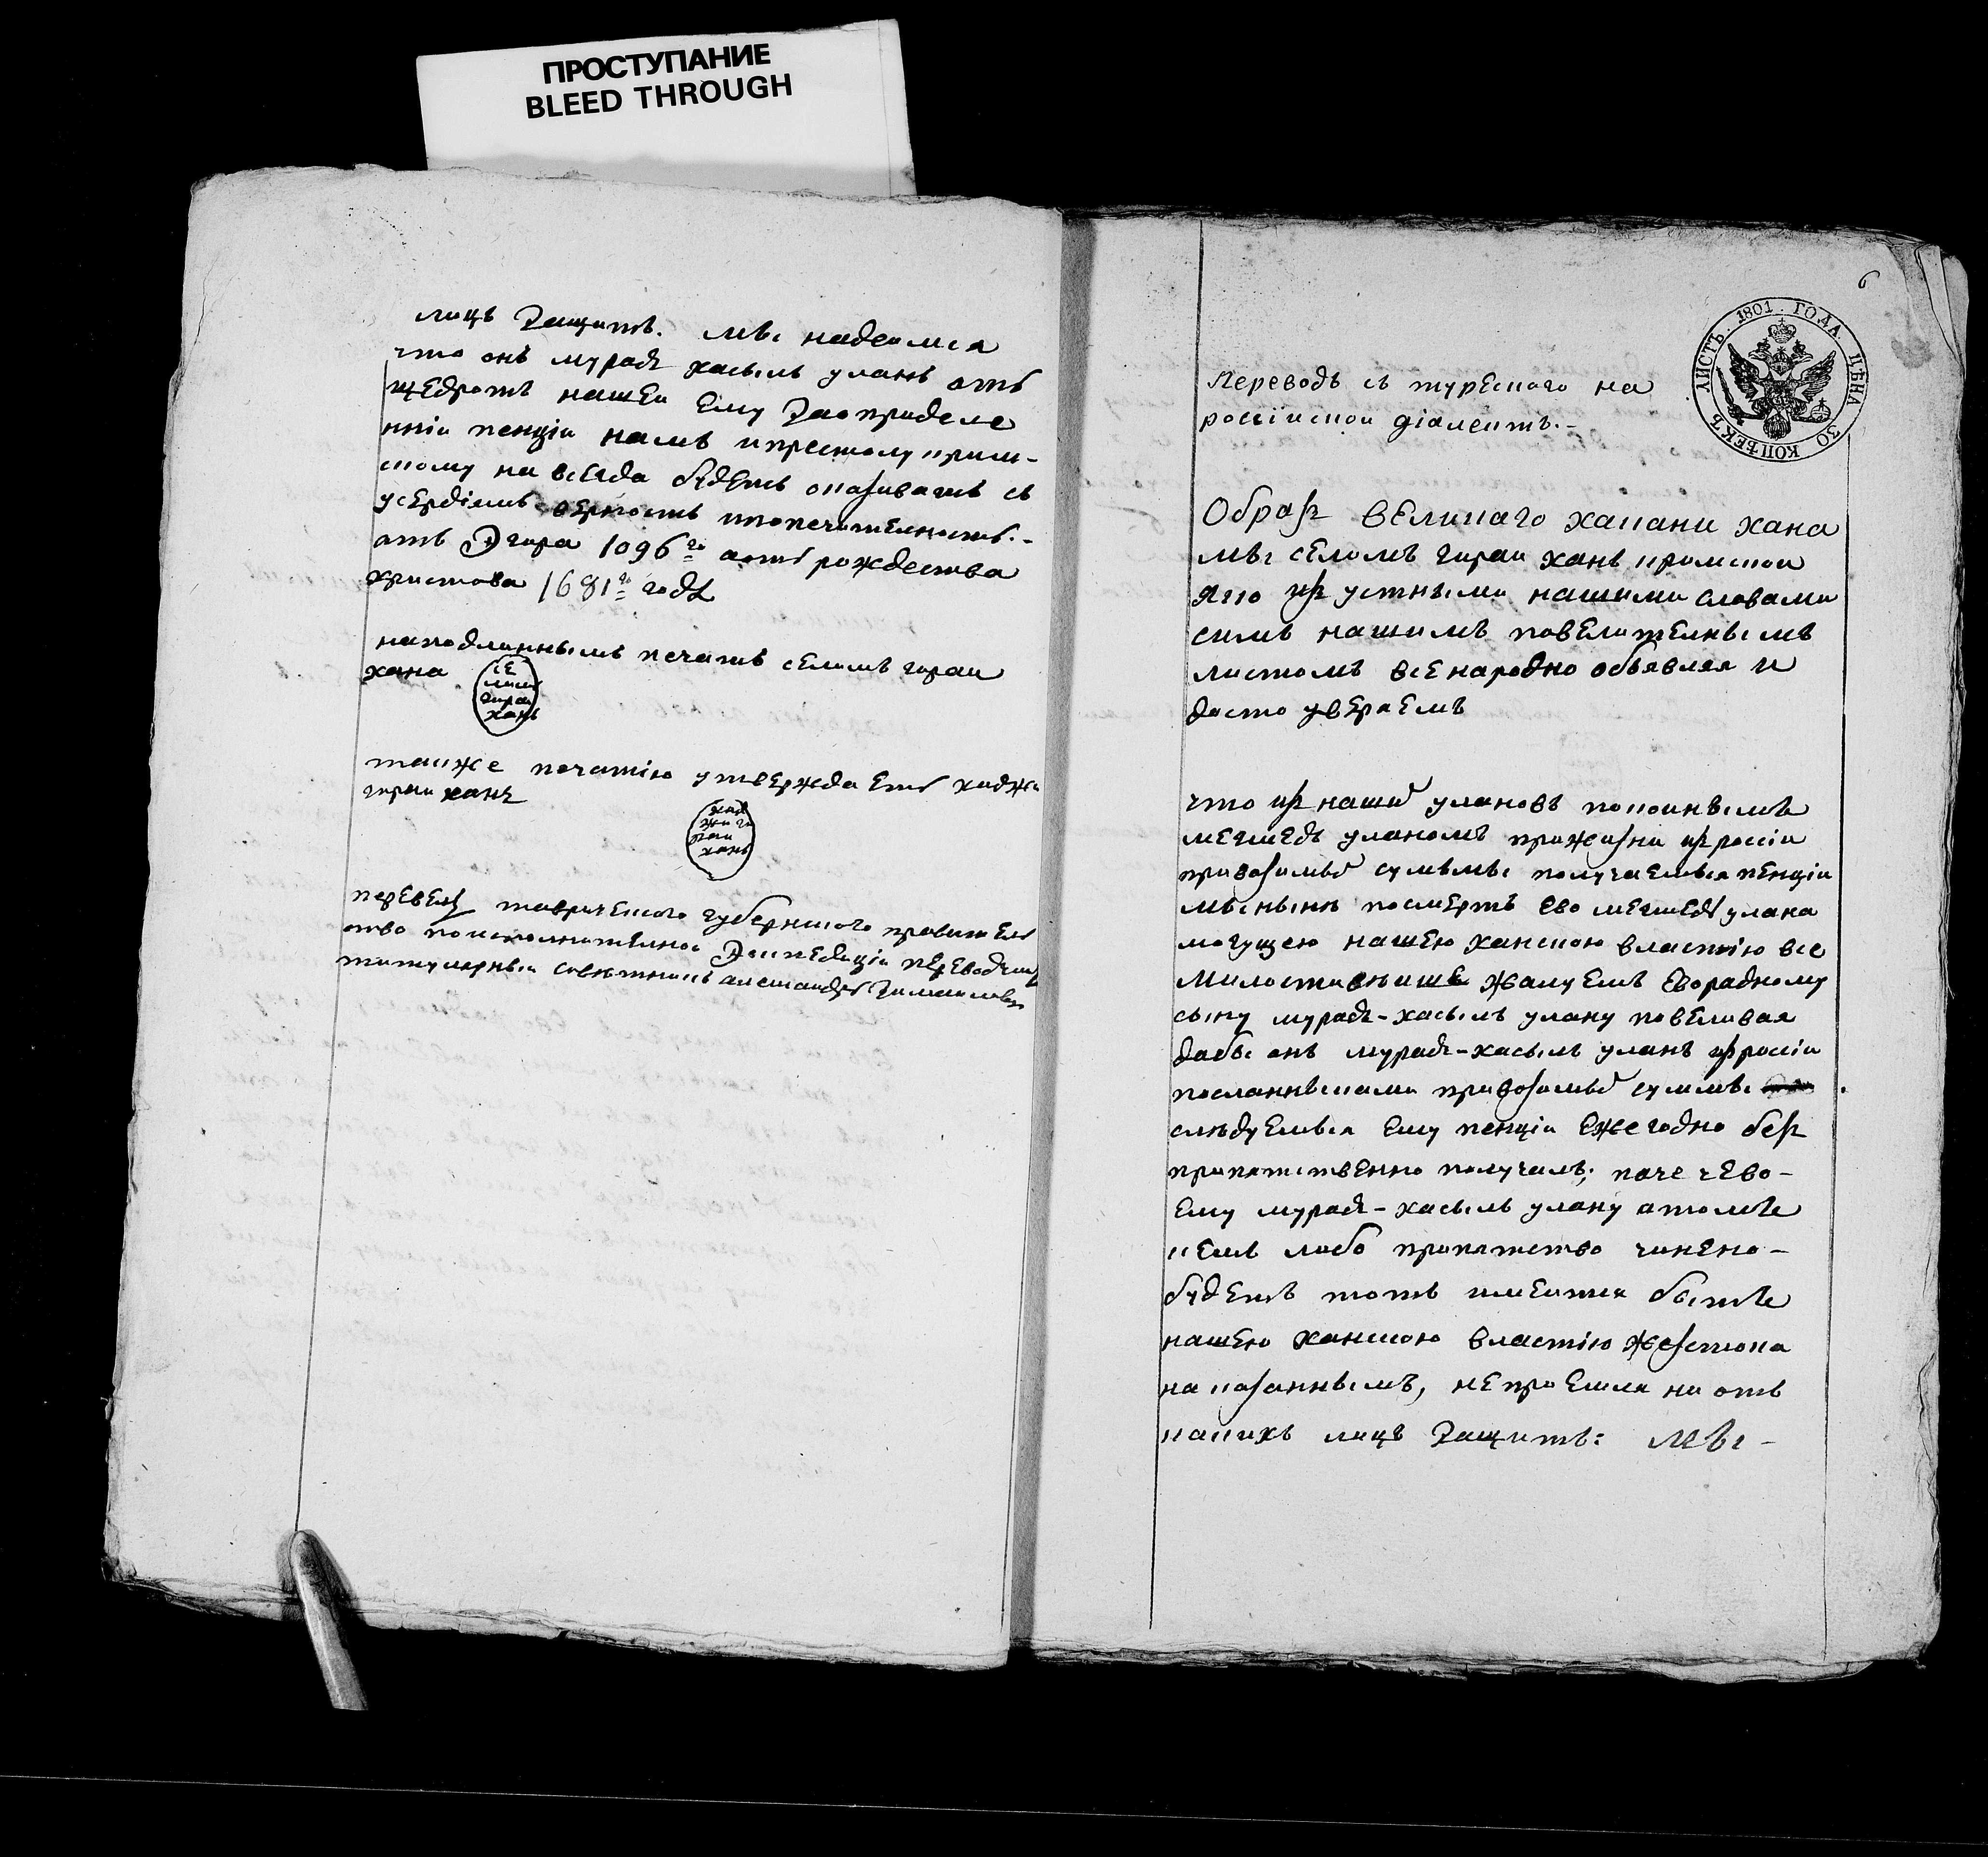 ПРОСТУПАНИЕ
BLEED THROUGH
лицъ Защитъ. мы надеимся
что онъ мурадъ хасылъ уланъ отъ
щедротъ нашеи ему Заопределе
нніи пенціи намъ ипрестолу крим-
скому на всегда будетъ оказивать съ
усердіимъ верность ипопечителность.-
отъ Эгира 1096го аотъ рождества
христова 1681го году
наподлиннымъ печать селимъ гираи
хана
се
лимъ
гираи
ханъ
также печатію утверждаетъ хаджи
гираи ханъ
хад
жи ги
раи
ханъ
перевелъ таврического губернского правителс
тво поисполнителной Экспедиціи переводчикъ
титулярныи советникъ александръ
6
ЛИСТЪ. 1801. ГОДА. ЦѢНА 30 КОПѢЕКЪ
Переводъ съ турескаго на
россіиской діалектъ.-
Образъ великаго хакани хана
мы селимъ гираи ханъ кримскои
Яко изъ устными нашими словами
симъ нашимъ повелителнымъ
листомъ всенародно объявляя и
досто увераемъ
что изъ нашихъ улановъ покоинымъ
мегмедъ уланомъ прижизни изъ россіи
привозимыхъ суммы получаемыя пенціи
мы нынѣ посмерть ево мегмедъ улана
могущею нашею ханскою властію все
милостивѣише жалуемъ его родному
сыну мурадъ-хасылъ улану повеливая
дабы онъ мурадъ-хасылъ уланъ изъ россіи
посланныками привозимыхъ суммы
слѣдуемыя ему пенціи ежегодно безъ
припятственно получалъ; паче чево-
ему мурадъ-хасылъ улану атомъ
кемъ либо припятство чинено-
будетъ тотъ имеитъ быть
нашею ханскою властію жестоко
наказаннымъ, не приемля ни отъ
какихъ лицъ Защитъ: мы-